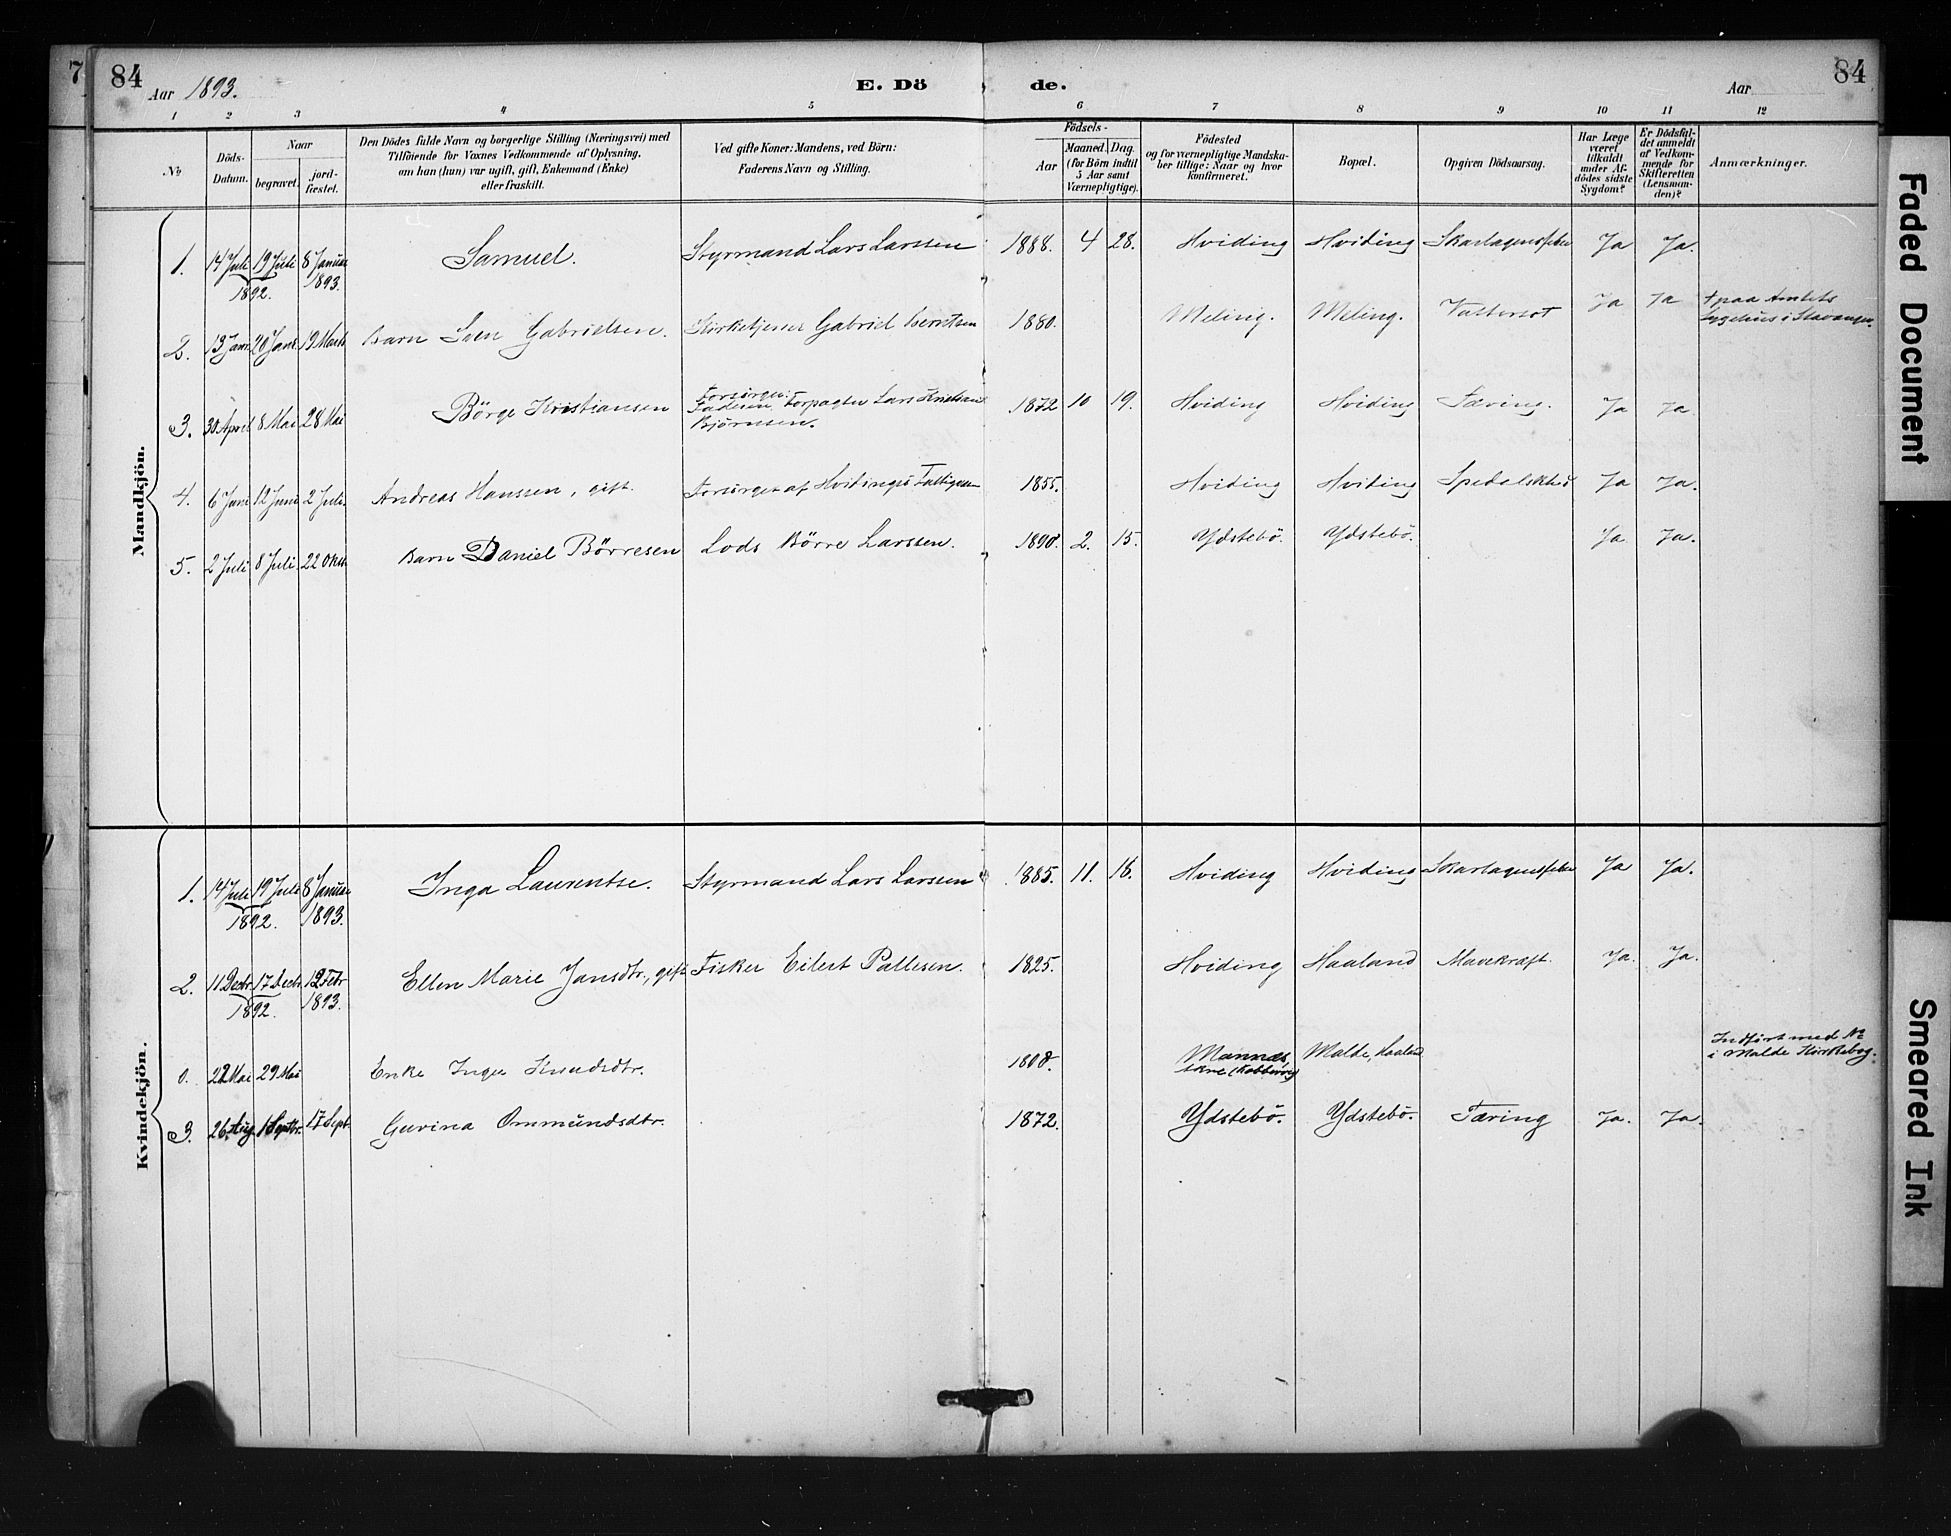 7
84
Aar 1893.
E. Dö
de.
Aar
84
1 2 3 4 5 6 7 8 9 10 11 12
№
Döds-
Datum.
Naar
begravet.
jord-
fæstet.
Den Dödes fulde Navn og borgerlige Stilling (Næringsvei) med
Tilföiende for Voxnes Vedkommende af Oplysning,
om han (hun) var ugift, gift, Enkemand (Enke)
eller fraskilt.
Ved gifte Koner: Mandens, ved Börn:
Faderens Navn og Stilling.
Födsels-
Aar
Maaned. Dag.
(for Börn indtil
5 Aar samt
Værnepligtige).
Födested
og for værnepligtige Mandska-
ber tillige: Naar og hvor
konfirmeret.
Bopæl.
Opgiven Dödsaarsag.
Har Læge
været
tilkaldt
under Af-
dödes sidste
Sygdom?
Er Dödsfal-
det anmeldt
af Vedkom-
mende for
Skifteretten
(Lensman-
den)?
Anmærkninger.
Mandkjön.
1. 14 Juli 19 Juli 8 Januar Samuel. Styrmand Lars Larssen 1888. 4 28. Hviding Hviding Skarlagensfeber Ja Ja.
1892. 1893.
2. 13 Janr. 20 Janr. 19 Marts Barn Sven Gabrielsen. Kirketjener Gabriel Berntsen 1880. Meling. Meling. Vattersot Ja Ja † paa Amtets
Sygehus i Stavanger.
3. 30 April 8 Mai 28 Mai Börge Kristiansen Forsörger:
Faderen, Forpagter Lars Kristian
Björnsen. 1872 10 19. Hviding Hviding Tæring. Ja Ja
4. 6 Juni 12 Juni 2 Juli. Andreas Hanssen, gift. Forsörget af Hvidingsö Fattigvæsen 1855. Hviding Hviding Spedalskhed Ja Ja.
5. 2 Juli 8 Juli. 22 Oktr. Barn Daniel Börresen Lods Börre Larssen. 1890. 2. 15. Ydstebö. Ydstebö. Ja Ja.
Kvindekjön.
1. 14 Juli 19 Juli 8 Januar Inga Laurentse. Styrmand Lars Larssen 1885. 11. 16. Hviding Hviding Skarlagensfeber Ja Ja.
1892. 1893.
2. 11 Decbr. 17 Decbr. 12 Febr. Ellen Marie Jansdtr., gift Fisker Eilert Pallesen. 1825. Hviding Haaland Mavekræft Ja. Ja.
1892. 1893.
0. 22 Mai 29 Mai Enke Inger Knudsdtr. 1808. Mannæs, Malde, Haaland Indfört med №
i Malde Kirkebog.
3. 26 Aug. 1 Septbr. 17 Sept. Gurina Ommundsdtr. 1872. Ydstebö. Ydstebö. Tæring Ja. Ja.
Faded Document
Smeared Ink